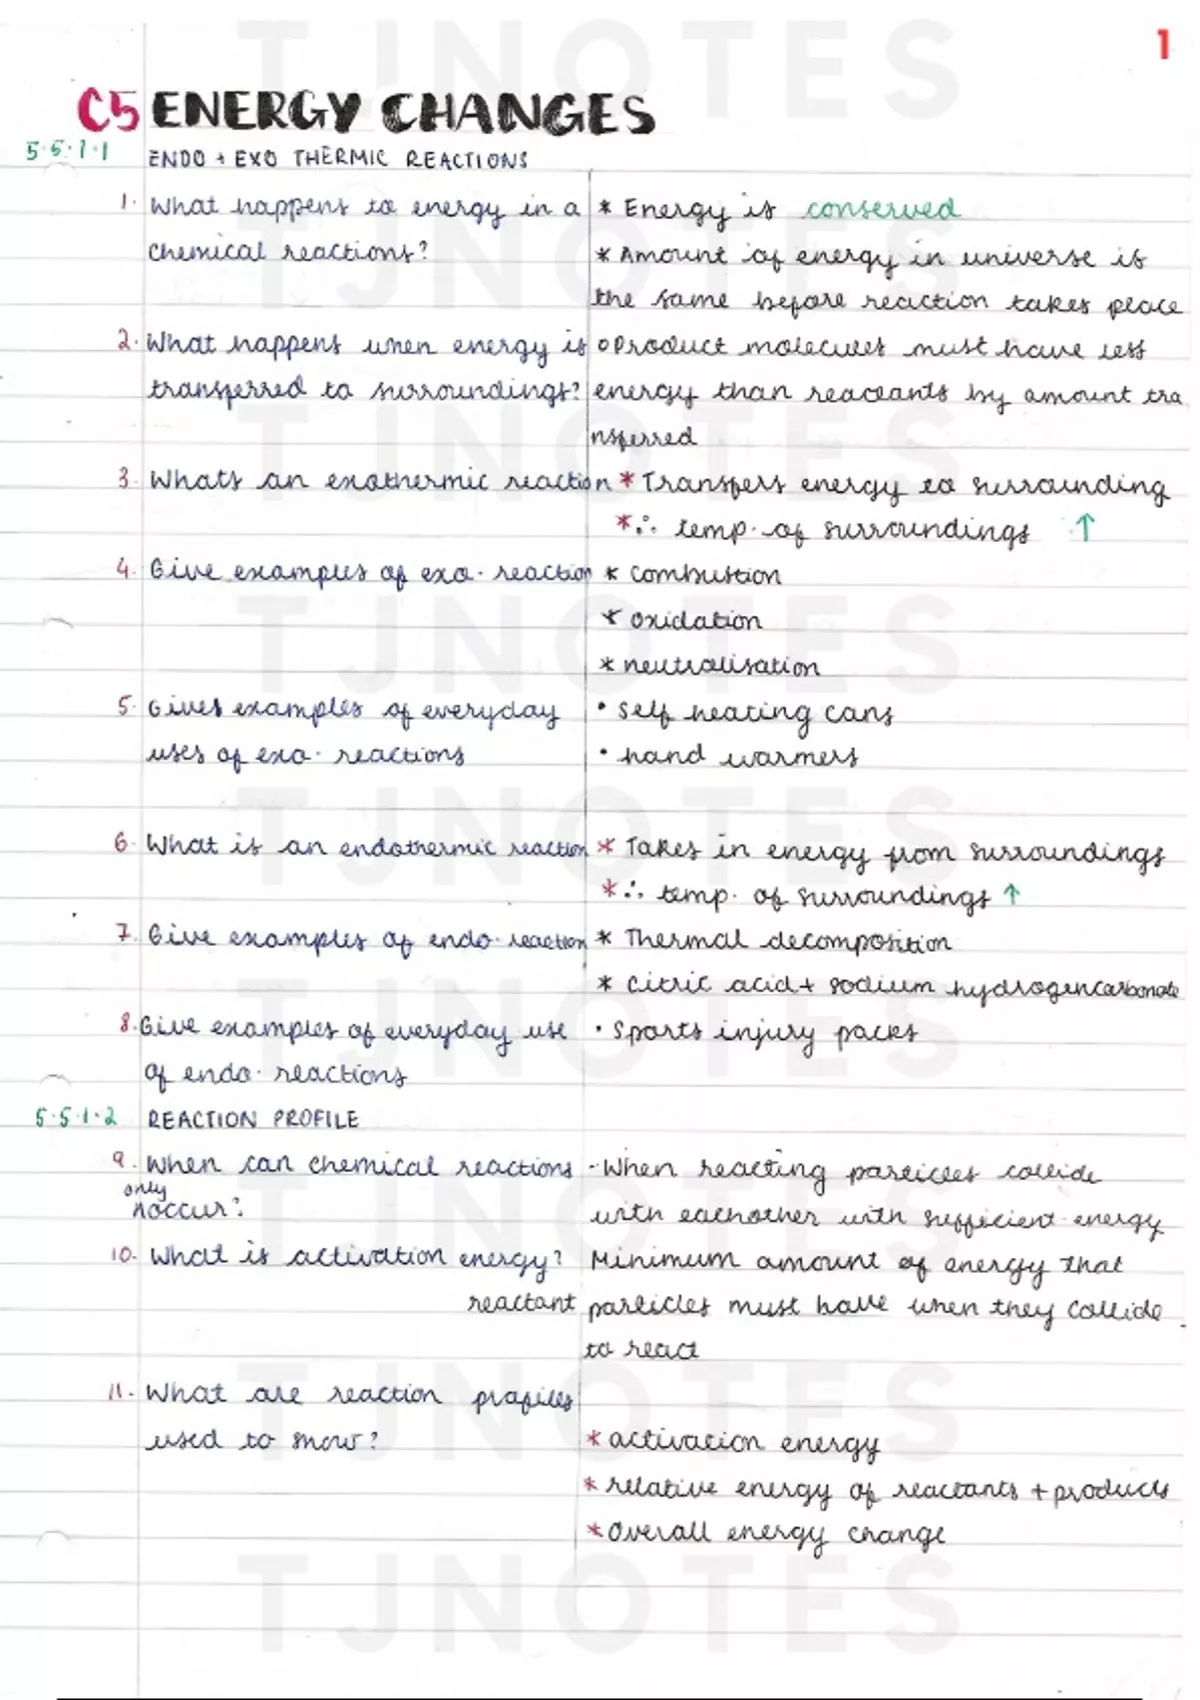 1
C5 ENERGY CHANGES
5.5.1.1 ENDO + EXO THERMIC REACTIONS
1. What happens to energy in a
chemical reactions?
* Energy is conserved
* Amount of energy in universe is
the same before reaction takes place
2. What happens when energy is
transferred to surroundings?
o Product molecules must have less
energy than reactants by amount tra
nsferred
3. Whats an exothermic reaction
* Transfers energy to surrounding
* ∴ temp. of surroundings ↑
4. Give examples of exo. reaction
* Combustion
* Oxidation
* neutralisation
5. Gives examples of everyday
uses of exo. reactions
• Self heating cans
• hand warmers
6. What is an endothermic reaction
* Takes in energy from surroundings
* ∴ temp. of surroundings ↑
7. Give examples of endo. reaction
* Thermal decomposition
* Citric acid + sodium hydrogencarbonate
8. Give examples of everyday use
of endo. reactions
• Sports injury packs
5.5.1.2 REACTION PROFILE
9. When can chemical reactions
only
occur?
- When reacting particles collide
with eachother with sufficient energy
10. What is activation energy?
Minimum amount of energy that
reactant particles must have when they collide
to react
11. What are reaction profiles
used to show?
* activation energy
* relative energy of reactants + products
* Overall energy change
TJNOTES
TJNOTES
TJNOTES
TJNOTES
TJNOTES
TJNOTES
TJNOTES
TJNOTES
TJNOTES